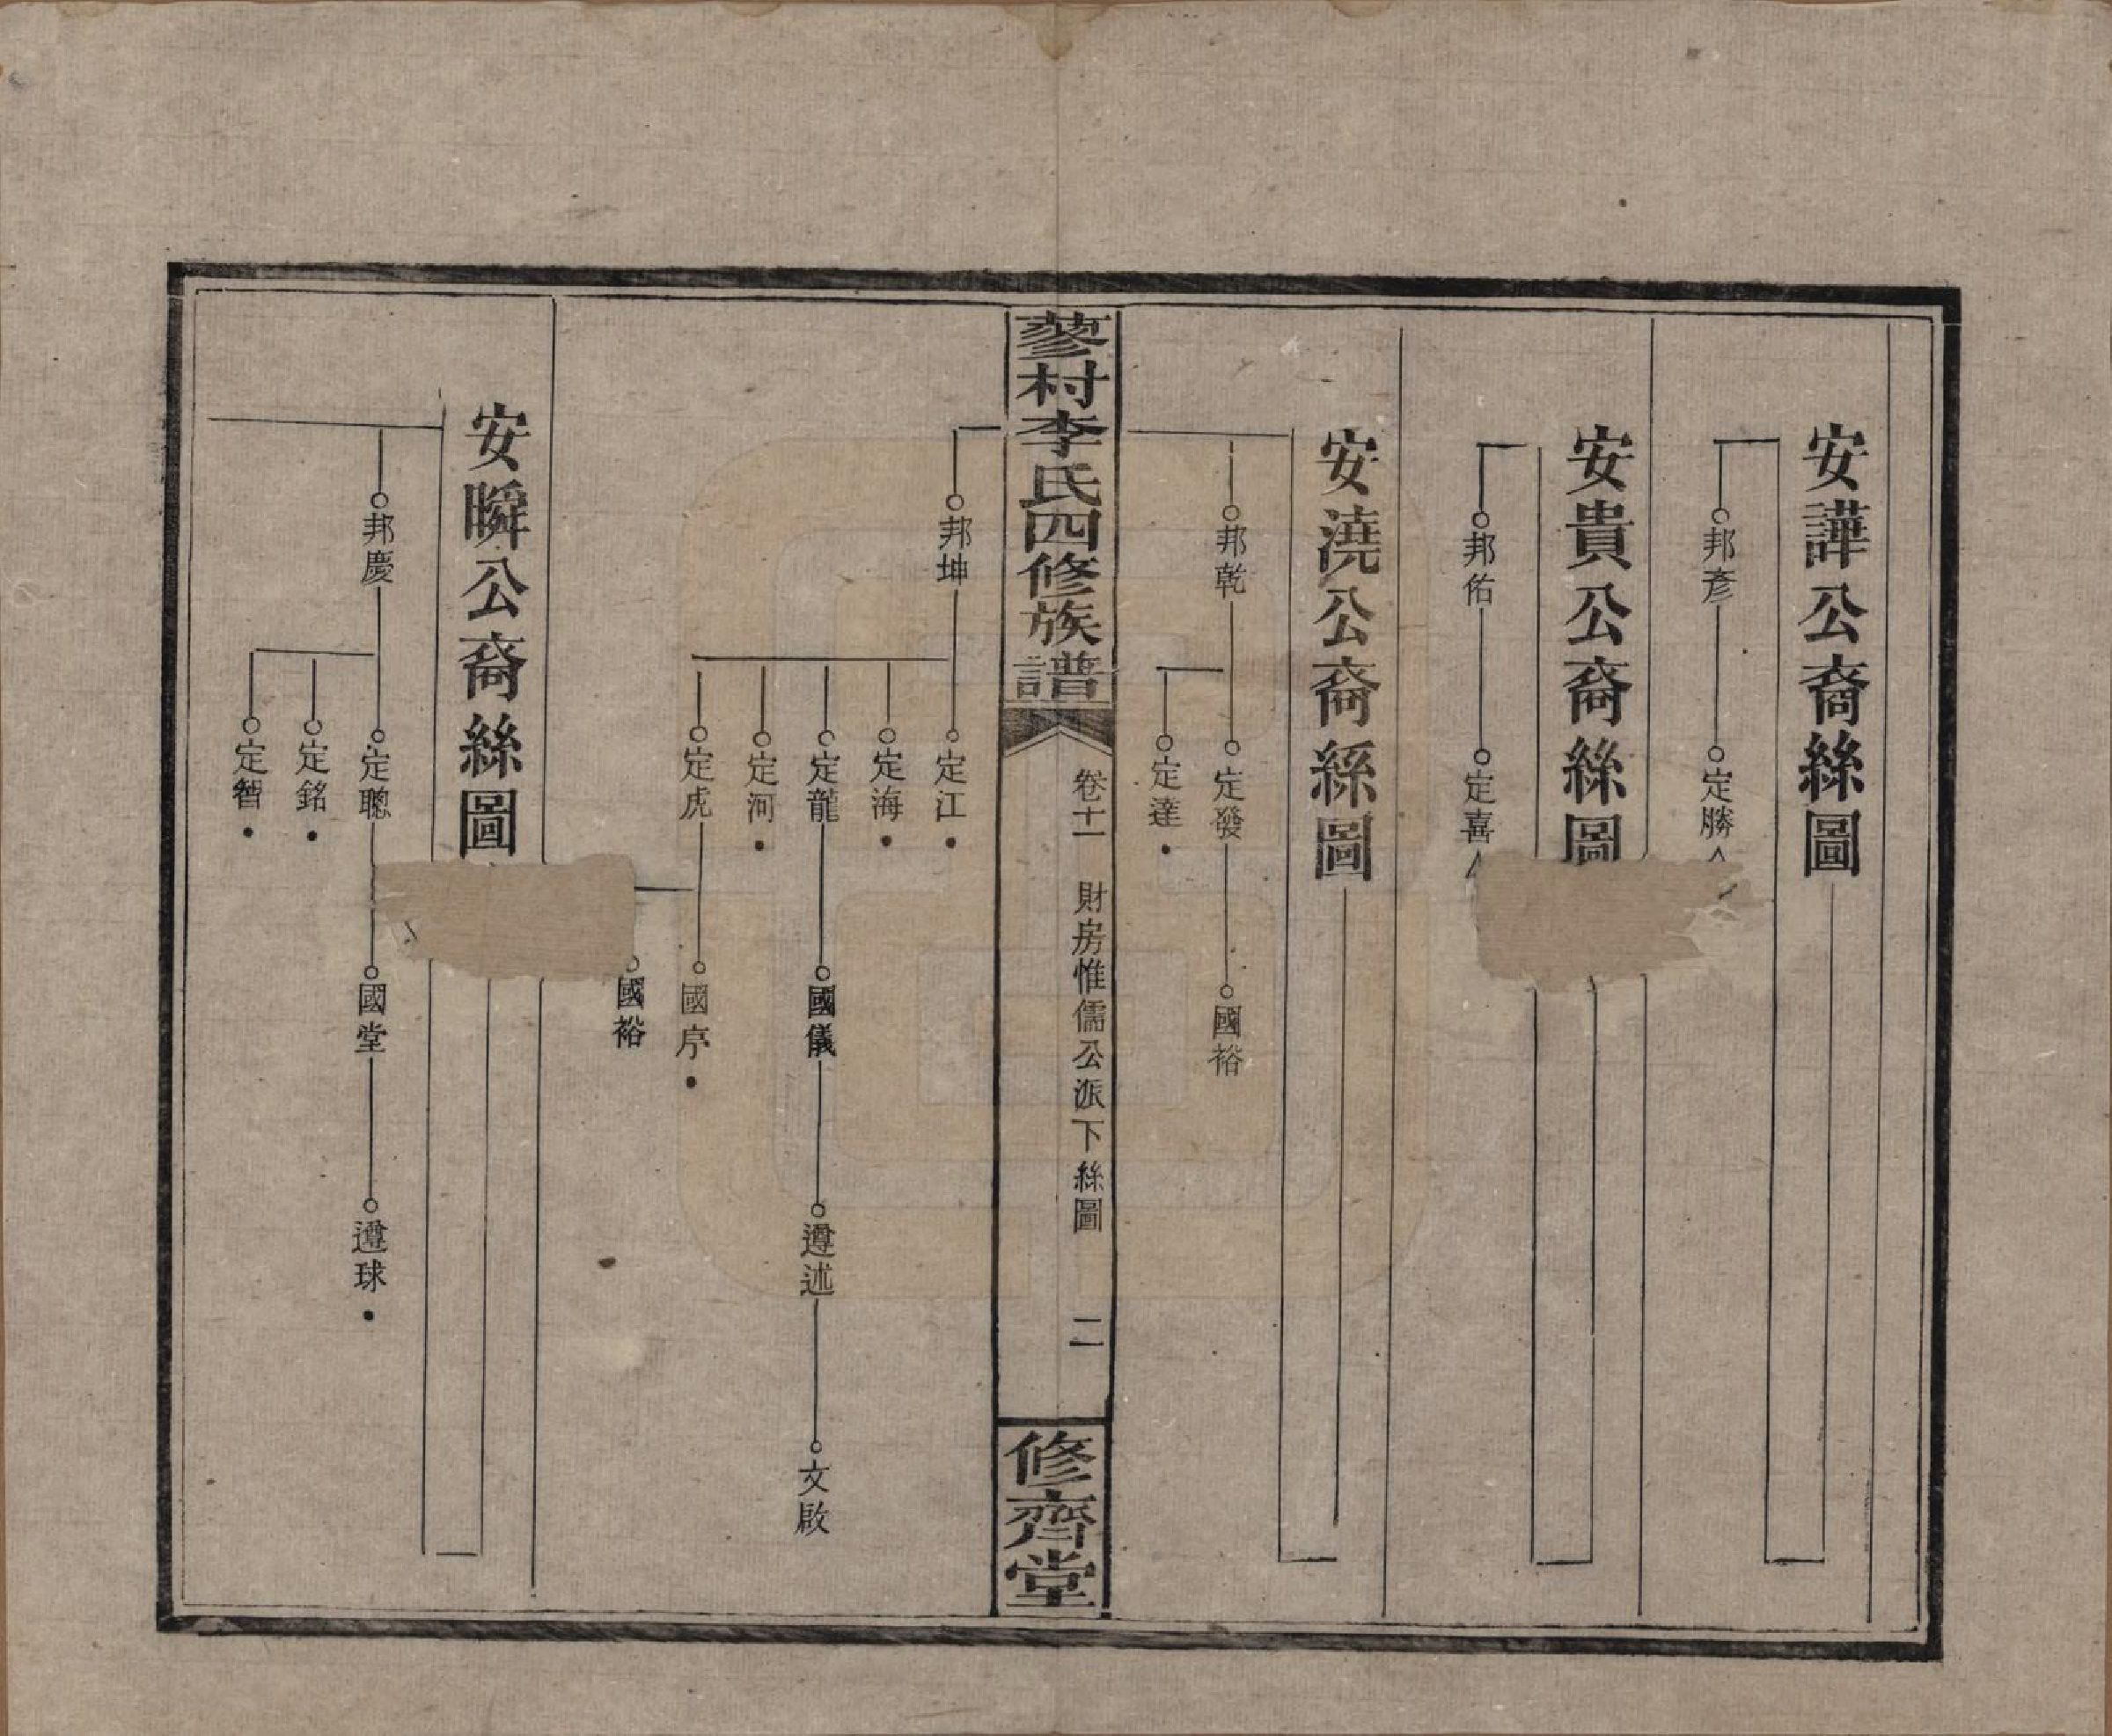 安譁公裔絲圖
邦彥
定勝
安貴公裔絲圖
邦佑
定喜
安澆公裔絲圖
邦乾
定發
國裕
定達
蓼村李氏四修族譜
卷十一
財房惟儒公派下絲圖
二
修齊堂
邦坤
定江
定海
定龍
國儀
遵述
文啟
定河
定虎
國序
國裕
安瞬公裔絲圖
邦慶
定聰
國堂
遵球
定銘
定智